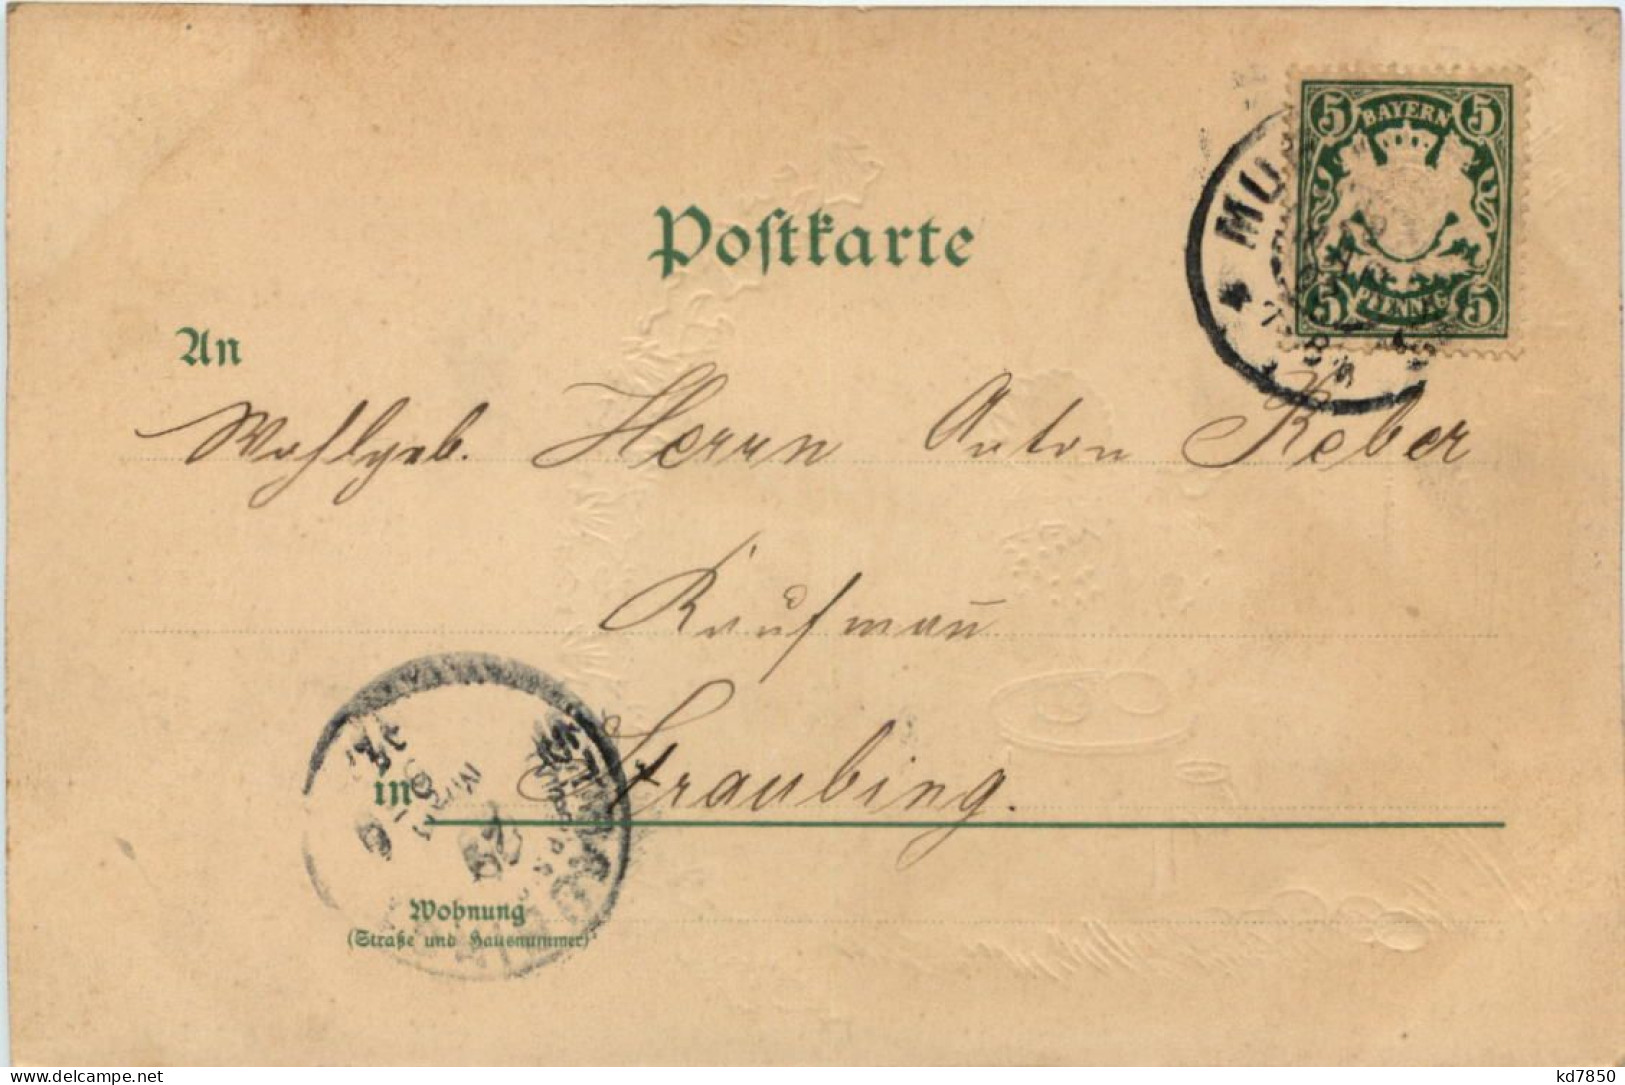 BAYERN
5 5
5 5
PFENNIG
Postkarte
An
Wohlgeb. Herrn Anton Reber
Kaufmann
in Straubing.
Wohnung
(Straße und Hausnummer)
kd7850
www.delcampe.net